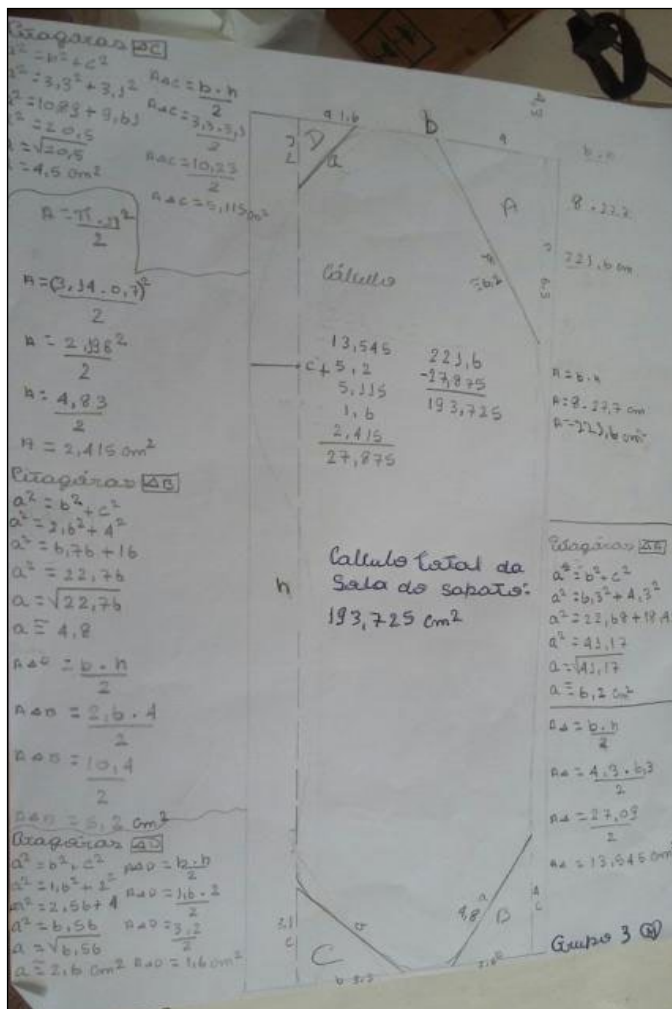 Pitágoras △C
a² = b² + c²
a² = 3,3² + 3,1²
a² = 10,89 + 9,61
a² = 20,5
a = √20,5
= 4,5 cm²
A△C = b . h
2
A△C = 3,3 . 3,1
2
A△C = 10,23
2
A△C = 5,115 cm²
A = π . r²
2
A = (3,14 . 0,7)²
2
A = 2,198²
2
A = 4,83
2
A = 2,415 cm²
Pitágoras △B
a² = b² + c²
a² = 2,6² + 4²
a² = 6,76 + 16
a² = 22,76
a = √22,76
a ≅ 4,8
A△B = b . h
2
A△B = 2,6 . 4
2
A△B = 10,4
2
A△B = 5,2 cm²
Pitágoras △D
a² = b² + c²
a² = 1,6² + 2²
a² = 2,56 + 4
a² = 6,56
a = √6,56
a ≅ 2,6 cm²
A△D = b . h
2
A△D = 1,6 . 2
2
A△D = 3,2
2
A△D = 1,6 cm²
1,6
D
a
b
A
Cálculo
13,545
+ 5,2
5,115
1,6
2,415
27,875
221,6
-27,875
193,725
h
Calculo total da
Sola do sapato:
193,725 cm²
3,1
c
C
b 3,3
4,8
a
B
b . h
8 . 27,7
221,6 cm
A = b . h
A = 8 . 27,7 cm
A = 221,6 cm²
Pitágoras
a² = b² + c²
a² = 6,3² + 4,3²
a² = 22,68 + 18,4
a² = 41,17
a = √41,17
a ≅ 6,2 cm²
A△ = b . h
2
A△ = 4,3 . 6,3
2
A△ = 27,09
2
A△ = 13,545 cm
Grupo 3